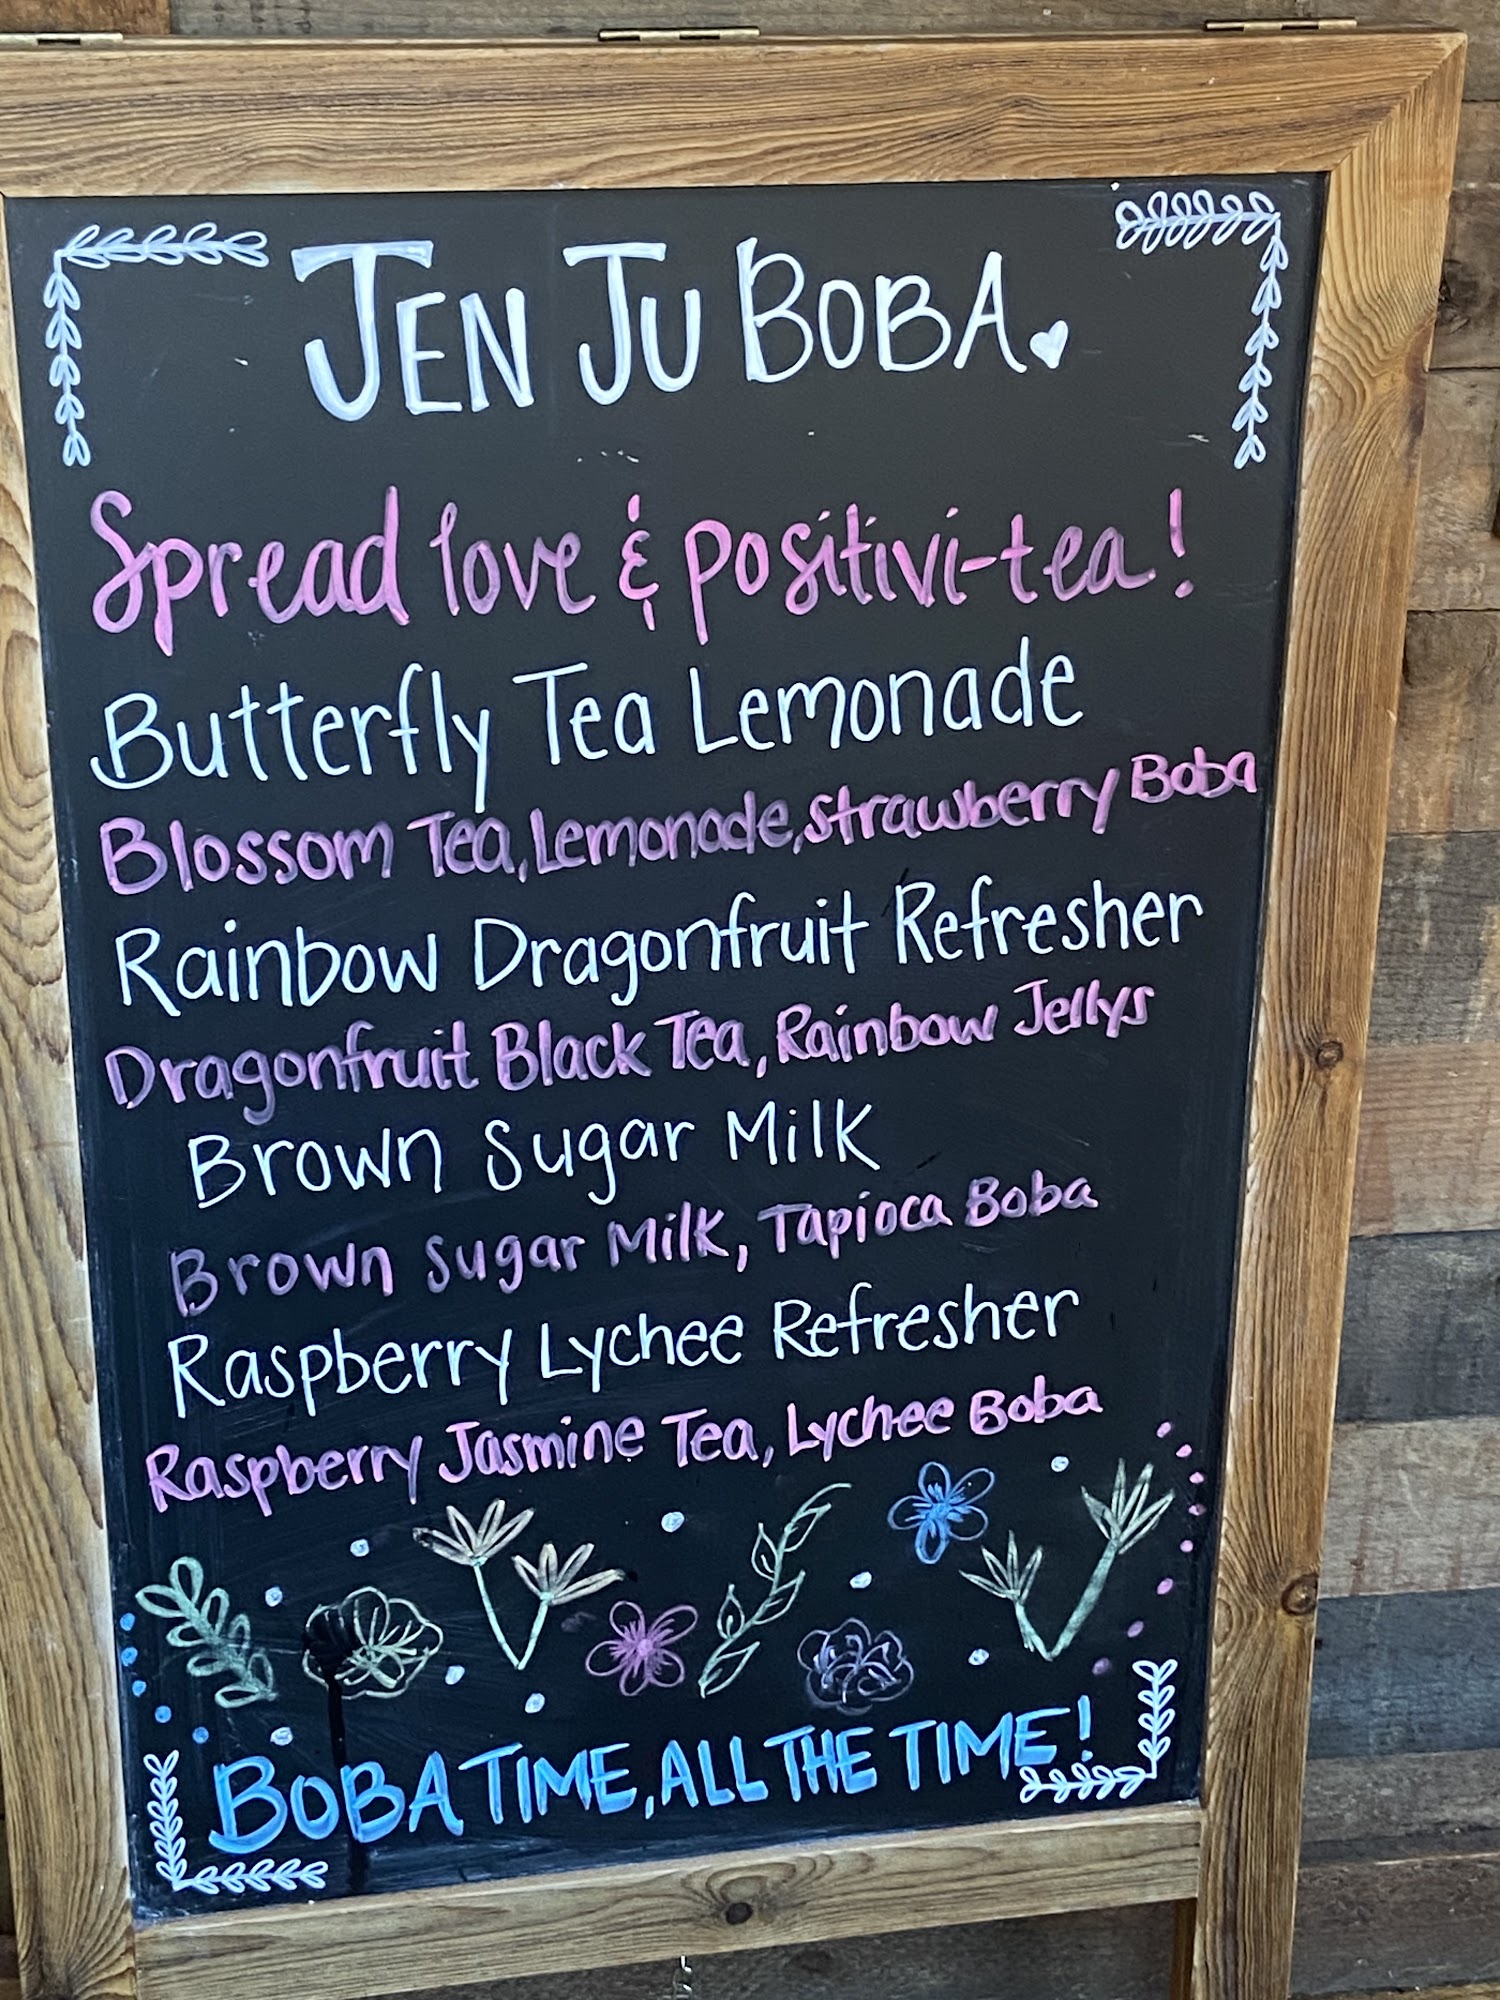 JEN JU BOBA
Spread love & positivi-tea!
Butterfly Tea Lemonade
Blossom Tea, Lemonade, Strawberry Boba
Rainbow Dragonfruit Refresher
Dragonfruit Black Tea, Rainbow Jellys
Brown Sugar Milk
Brown Sugar Milk, Tapioca Boba
Raspberry Lychee Refresher
Raspberry Jasmine Tea, Lychee Boba
BOBA TIME, ALL THE TIME!